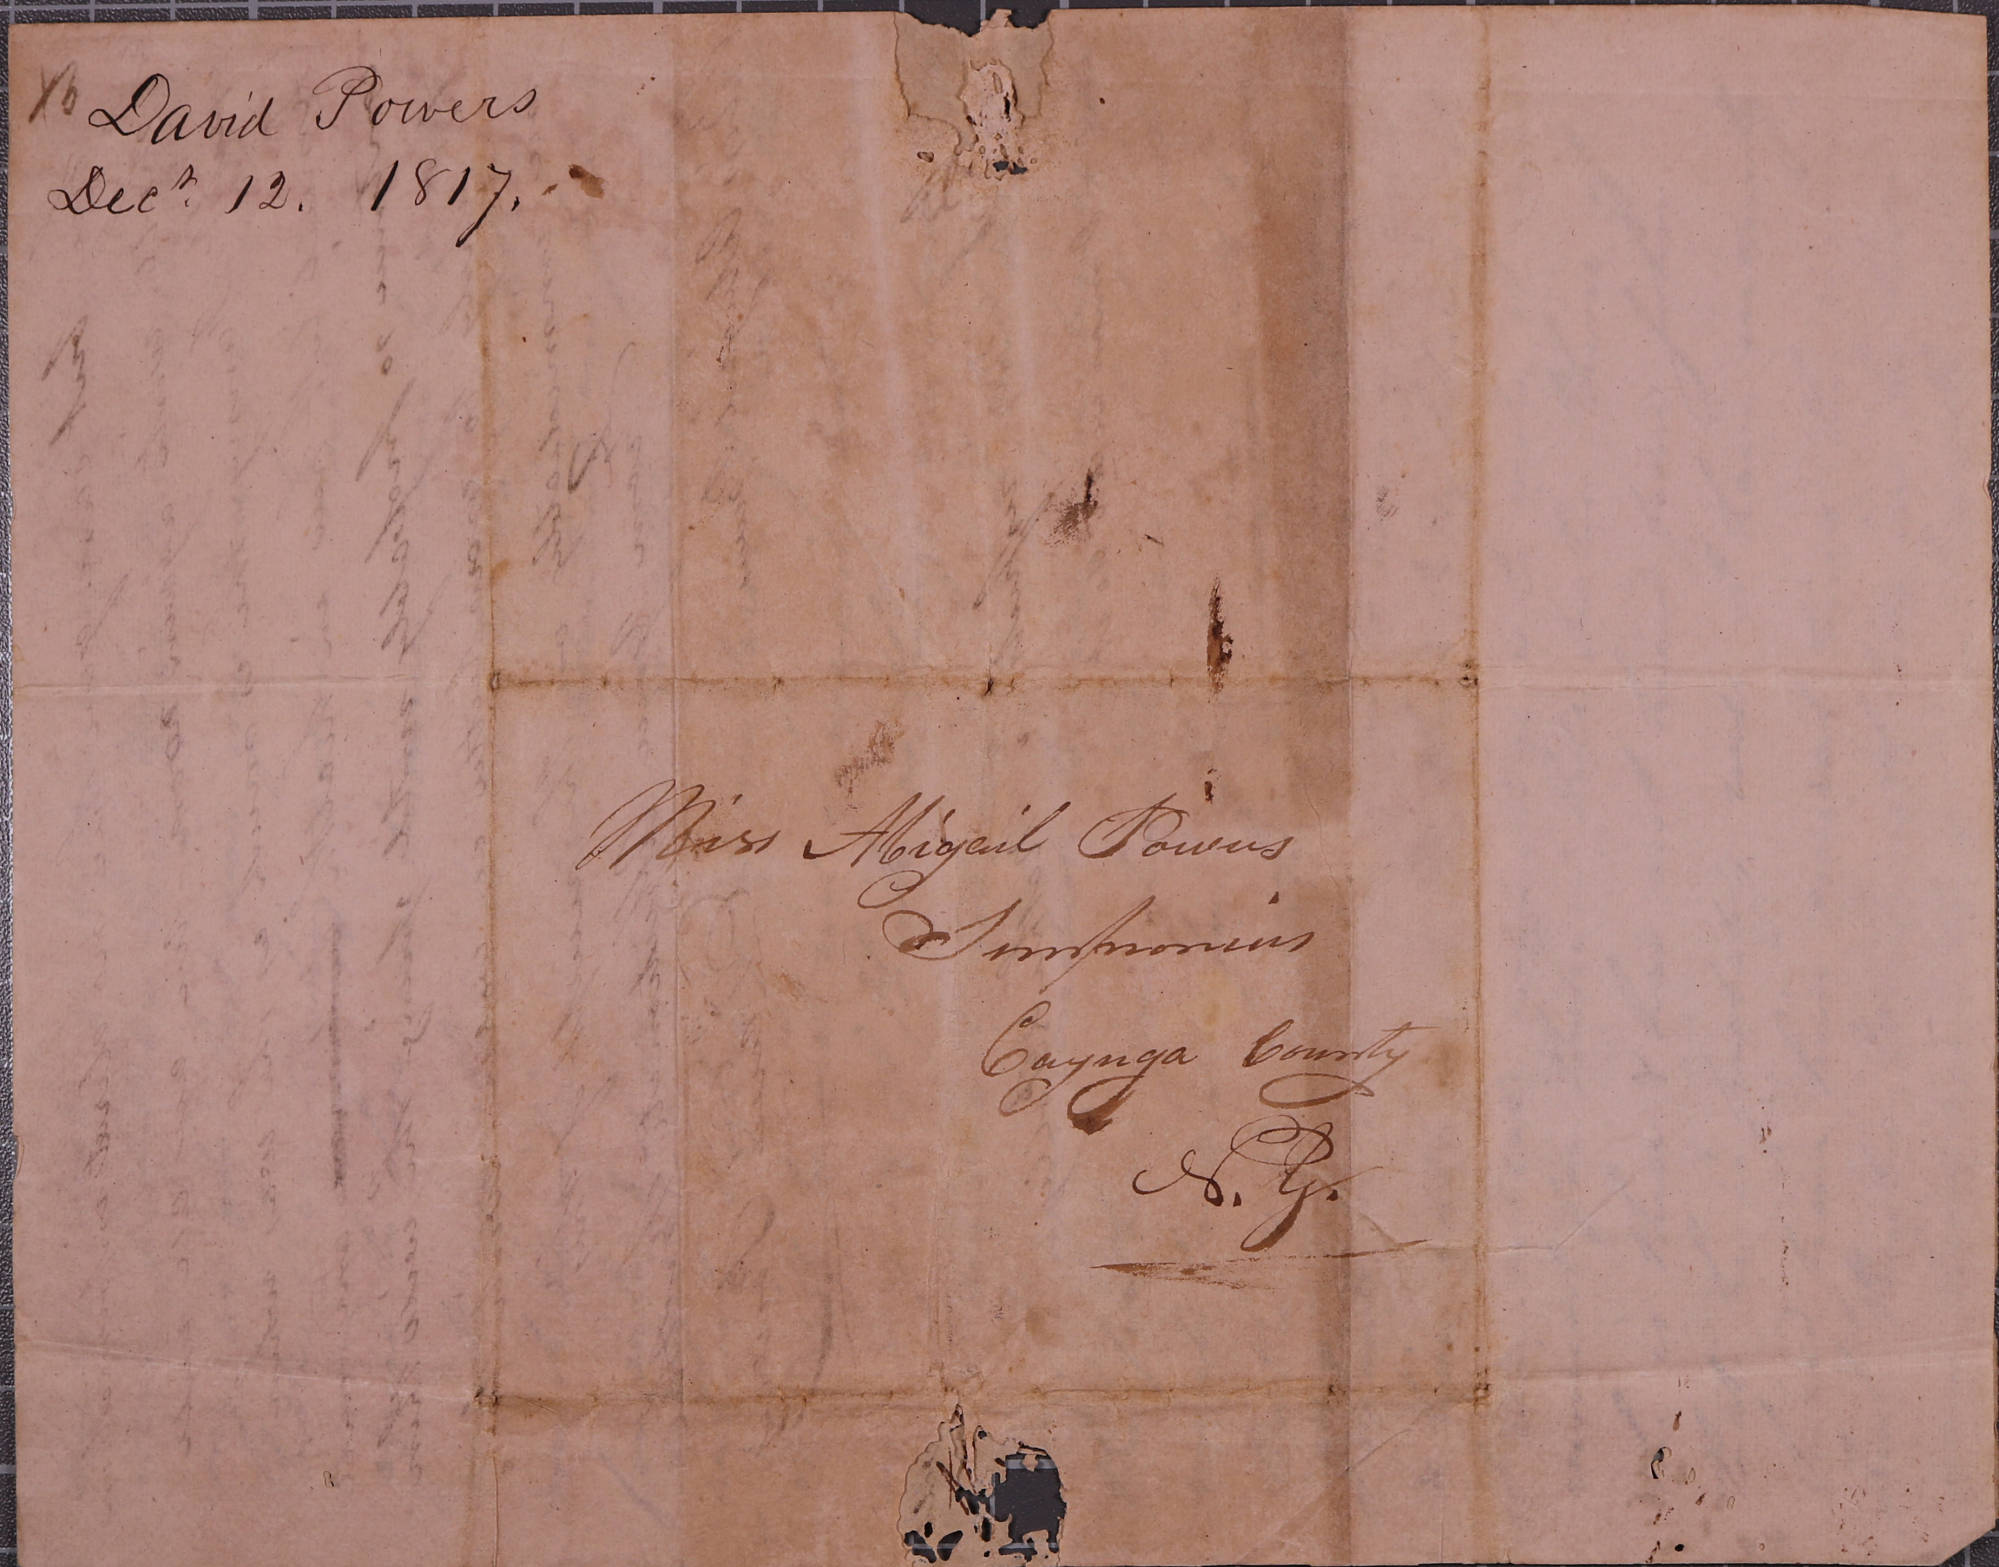 David Powers
Decr. 12. 1817.
Miss Abigail Powers
Sempronius
Cayuga County
N. Y.